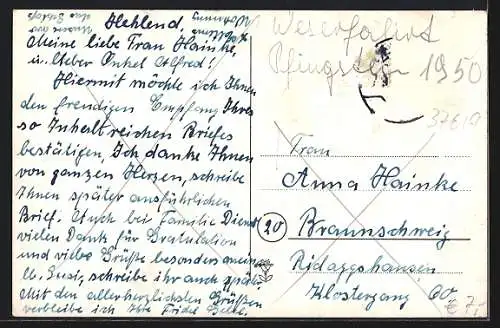 Hehlend,
Meine liebe Frau Hainke,
u. lieber Onkel Alfred!
Hiermit möchte ich Ihnen
den freudigen Empfang Ihres
so Inhalt reichen Briefes
bestätigen, Ich danke Ihnen
von ganzen Herzen, schreibe
Ihnen später ausführlichen
Brief. Auch bei Familie Dienst
vielen Dank für Gratulation
und viele Grüße besonders
lb. Susi, schreibe ihr auch später
Mit den allerherzlichsten Grüßen
verbleibe ich Ihre Fridel
Weserfahrt
Pfingsten 1950
Frau
Anna Hainke
20 Braunschweig
Ridaggshausen
Klostergang 60
€ 7,-